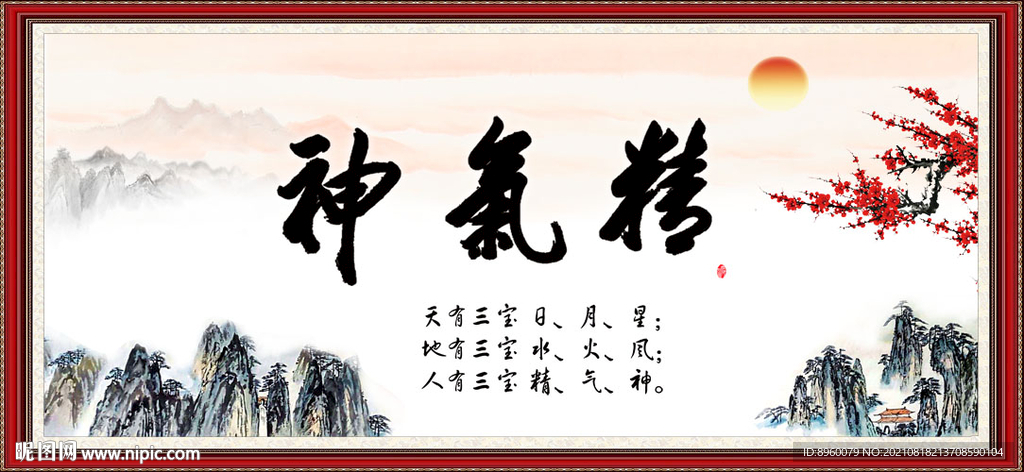 精氣神
天有三宝日、月、星；
地有三宝水、火、风；
人有三宝精、气、神。
昵图网 www.nipic.com
ID:8960079 NO:20210818213708590104